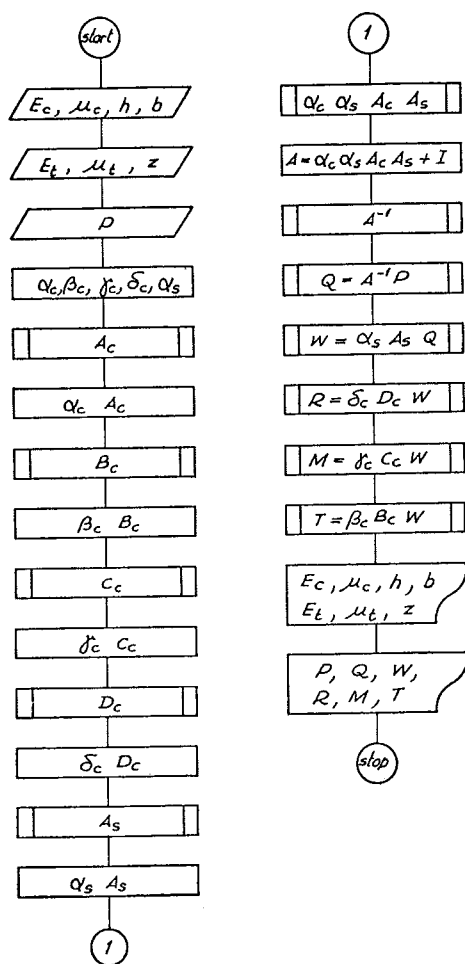 start
E_c, μ_c, h, b
E_t, μ_t, z
P
α_c, β_c, γ_c, δ_c, α_s
A_c
α_c A_c
B_c
β_c B_c
C_c
γ_c C_c
D_c
δ_c D_c
A_s
α_s A_s
1
1
α_c α_s A_c A_s
A = α_c α_s A_c A_s + I
A⁻¹
Q = A⁻¹ P
W = α_s A_s Q
R = δ_c D_c W
M = γ_c C_c W
T = β_c B_c W
E_c, μ_c, h, b
E_t, μ_t, z
P, Q, W,
R, M, T
stop